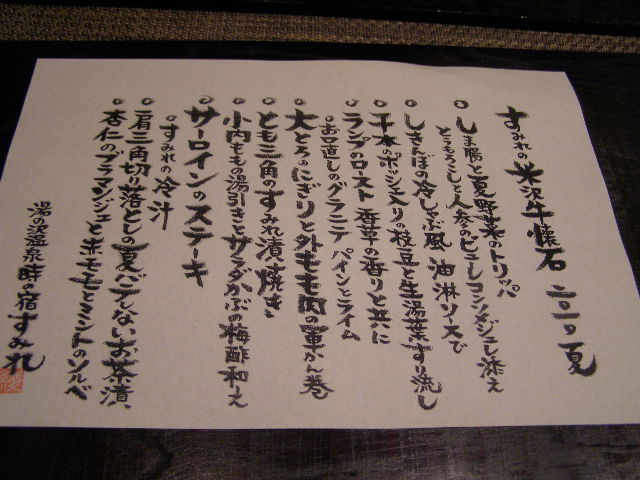 すみれの米沢牛懐石 二〇一〇夏
しま腸と夏野菜のトリッパ
とうもろこしと人参のピュレ コンソメジュレ添え
しきんぼの冷しゃぶ風 油淋ソースで
千本のポッシェ入りの枝豆と生湯葉すり流し
ランプのロースト 香草の香りと共に
お口直しのグラニテ パインとライム
大とろのにぎりと外もも肉の軍かん巻
とも三角のすみれ漬け焼き
小内ももの湯引きとサラダかぶの梅酢和え
サーロインのステーキ
すみれの冷汁
肩三角切り落としの夏バテしないお茶漬
杏仁のブラマンジェと赤ももとミントのソルベ
湯の沢温泉時の宿すみれ